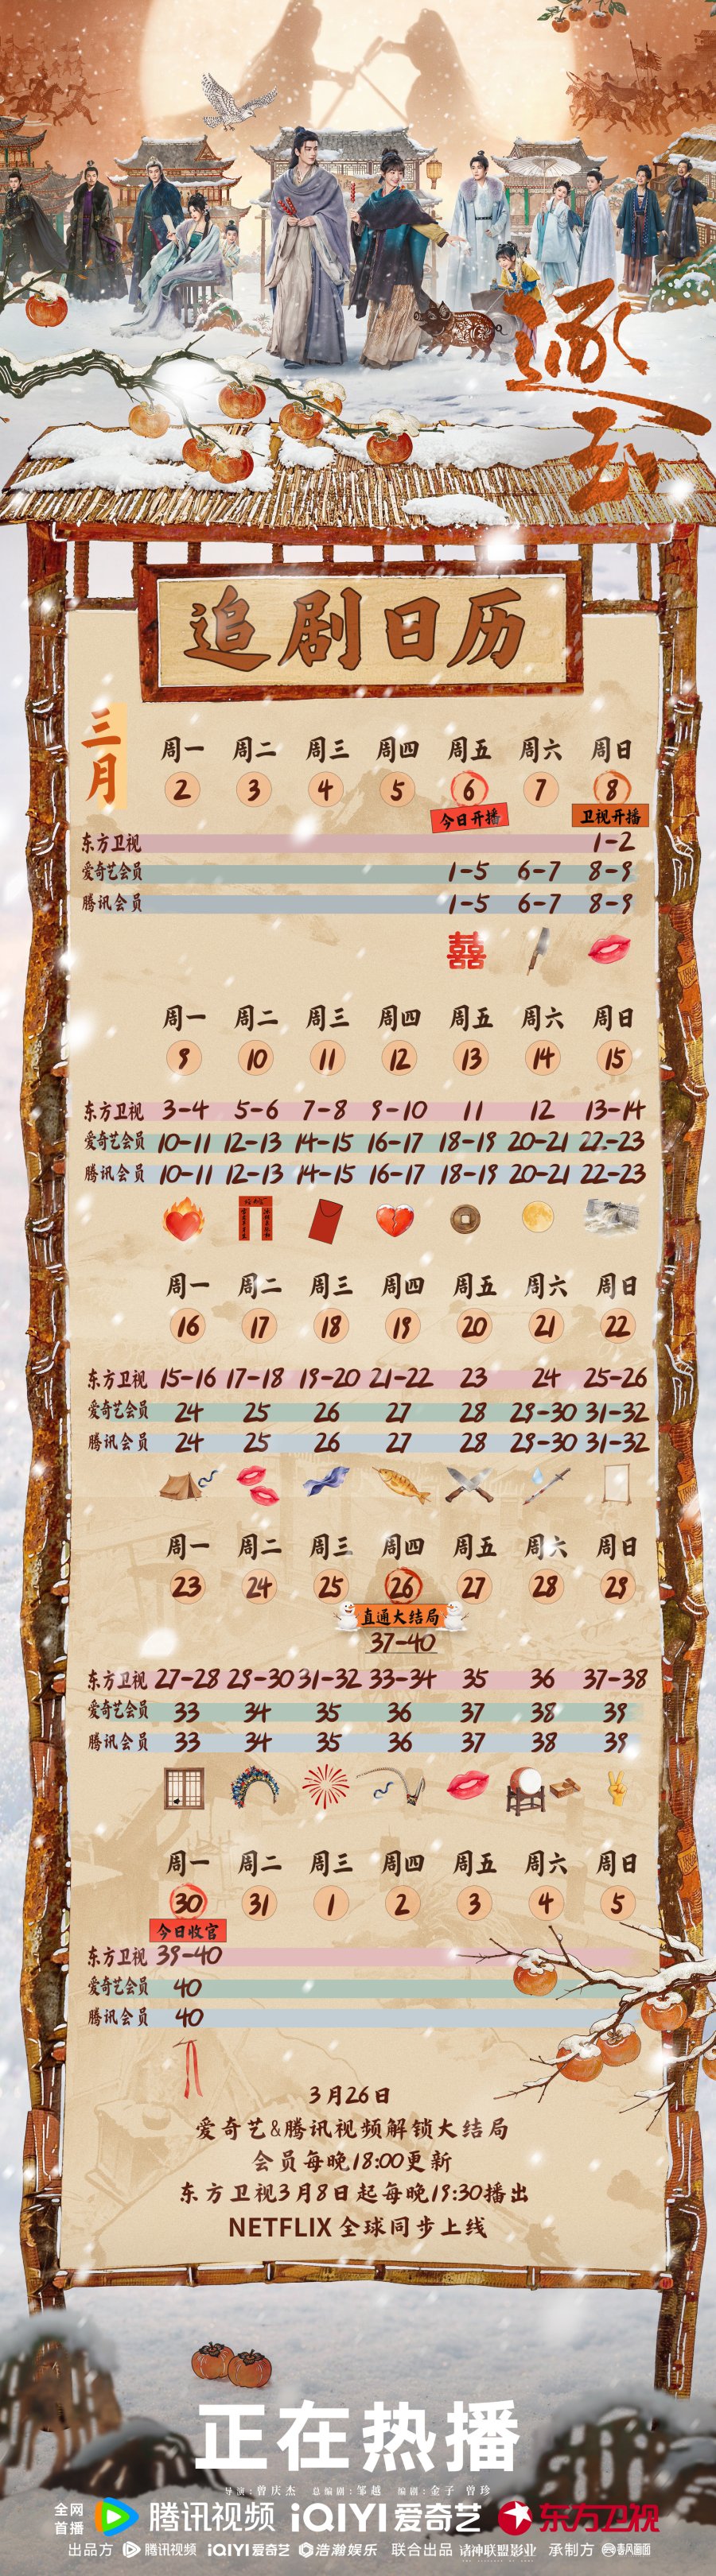 逐玉
追剧日历
三月
周一 周二 周三 周四 周五 周六 周日
2 3 4 5 6 7 8
今日开播 卫视开播
东方卫视 1-2
爱奇艺会员 1-5 6-7 8-9
腾讯会员 1-5 6-7 8-9
囍
周一 周二 周三 周四 周五 周六 周日
9 10 11 12 13 14 15
东方卫视 3-4 5-6 7-8 9-10 11 12 13-14
爱奇艺会员 10-11 12-13 14-15 16-17 18-19 20-21 22-23
腾讯会员 10-11 12-13 14-15 16-17 18-19 20-21 22-23
周一 周二 周三 周四 周五 周六 周日
16 17 18 19 20 21 22
东方卫视 15-16 17-18 19-20 21-22 23 24 25-26
爱奇艺会员 24 25 26 27 28 29-30 31-32
腾讯会员 24 25 26 27 28 29-30 31-32
周一 周二 周三 周四 周五 周六 周日
23 24 25 26 27 28 29
直通大结局
37-40
东方卫视 27-28 29-30 31-32 33-34 35 36 37-38
爱奇艺会员 33 34 35 36 37 38 39
腾讯会员 33 34 35 36 37 38 39
周一 周二 周三 周四 周五 周六 周日
30 31 1 2 3 4 5
今日收官
东方卫视 39-40
爱奇艺会员 40
腾讯会员 40
3月26日
爱奇艺&腾讯视频解锁大结局
会员每晚18:00更新
东方卫视3月8日起每晚19:30播出
NETFLIX 全球同步上线
正在热播
导演:曾庆杰 总编剧:邹越 编剧:金子 曾珍
全网首播 腾讯视频 iQIYI爱奇艺 东方卫视
出品方 腾讯视频 iQIYI爱奇艺 浩瀚娱乐 联合出品 诸神联盟影业 承制方 春风画面